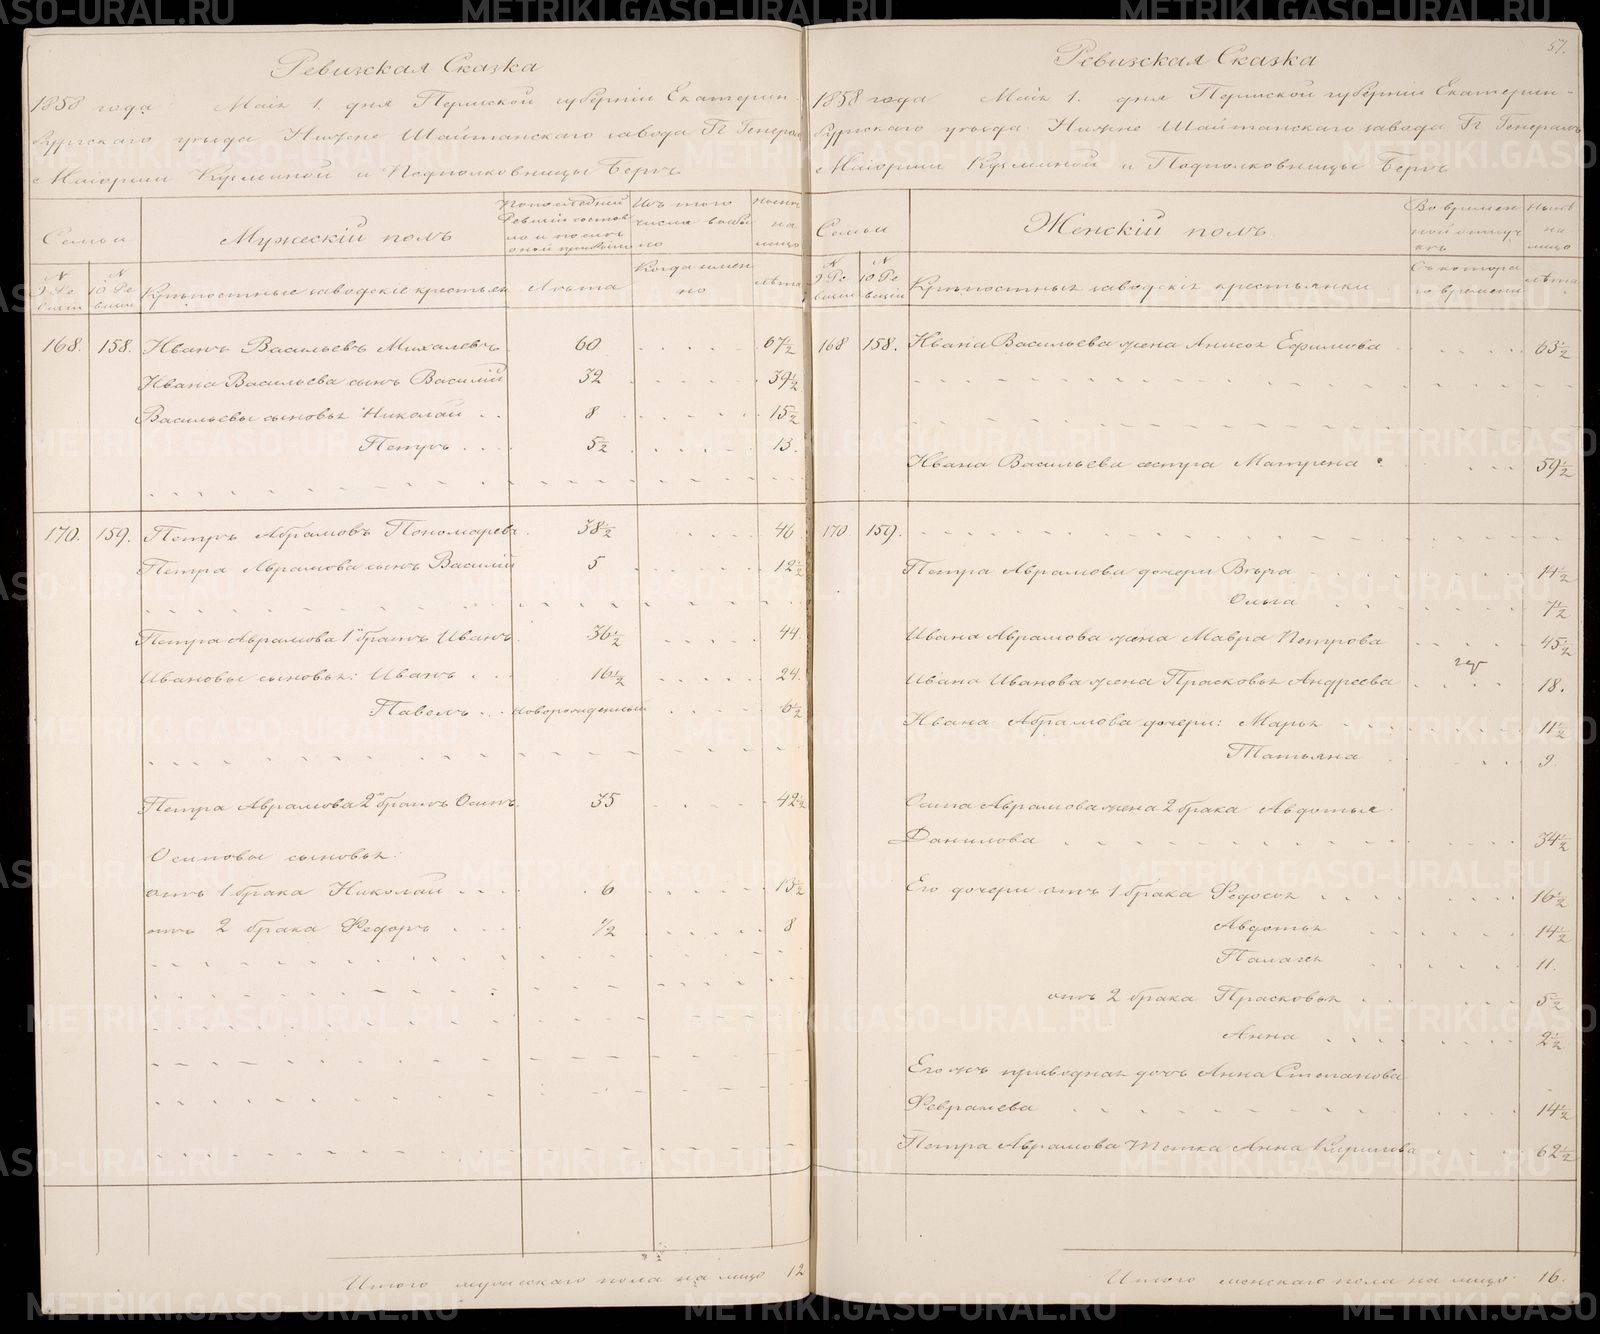 Ревизская Сказка
1858 года Маія 1. дня Пермской губерніи Екатерин-
бургскаго уѣзда Нижне Шайтанскаго завода Гг Генерал
Маіорши Кузминой и Подполковницы Бергъ
Семьи
Мужескій полъ
Изъ того числа выбыло
Нынѣ на лицо
N 9 Ревизіи
N 10 Ревизіи
Крѣпостные заводскіе крестьян
Лѣта
Когда имен но
Лѣта
168. 158. Иванъ Васильевъ Михалевъ 60 67½
Ивана Васильева сынъ Василій 32 39½
Васильевы сыновья Николай 8 15½
Петръ 5½ 13.
170. 159. Петръ Абрамовъ Пономаревъ 38½ 46
Петра Абрамова сынъ Василій 5 12½
Петра Абрамова 1й братъ Иванъ 36½ 44.
Ивановы сыновья: Иванъ 16½ 24.
Павелъ новорожденный 6½
Петра Абрамова 2й братъ Осипъ 35 42½
Осиповы сыновья:
отъ 1 брака Николай 6 13½
отъ 2 брака Федоръ ½ 8
Итого мужескаго пола на лицо 12
57.
Ревизская Сказка
1858 года Маія 1. дня Пермской губерніи Екатерин-
бургскаго уѣзда Нижне Шайтанскаго завода Гг Генералъ
Маіорши Кузминой и Подполковницы Бергъ
Семьи
Женскій полъ
Во времен ной отлуч кѣ
Нынѣ на лицо
N 9 Ревизіи
N 10 Ревизіи
Крѣпостныя заводскія крестьянки
Съ котора го времени
Лѣта
168 158. Ивана Васильева жена Анисья Ефимова 63½
Ивана Васильева сестра Матрена 59½
170 159.
Петра Абрамова дочери Вѣра 11½
Ольга 7½
Ивана Абрамова жена Мавра Петрова 45½
Ивана Иванова жена Прасковья Андреева 18.
Ивана Абрамова дочери: Марья 11½
Татьяна 9.
Осипа Абрамова жена 2 брака Авдотья
Данилова 34½
Его дочери отъ 1 брака Федосья 16½
Авдотья 14½
Палагея 11.
отъ 2 брака Прасковья 5½
Анна 2½
Его жъ приводная дочь Анна Степанова
Февралева 14½
Петра Абрамова тетка Анна Кирилова 62½
Итого женскаго пола на лицо 16.
METRIKI.GASO-URAL.RU